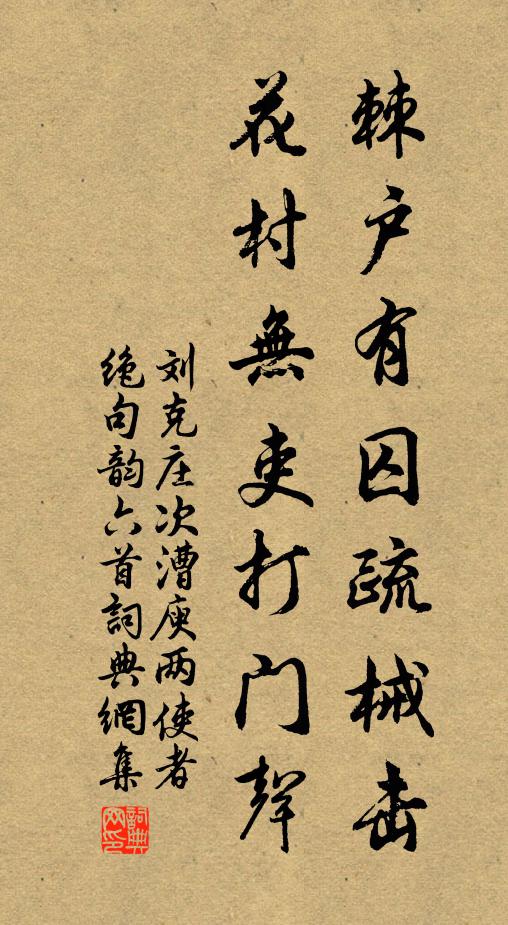 棘户有囚疏械击
花村無吏打门聲
刘克庄次漕庾两使者
绝句韵六首詞典網集
詞典网印